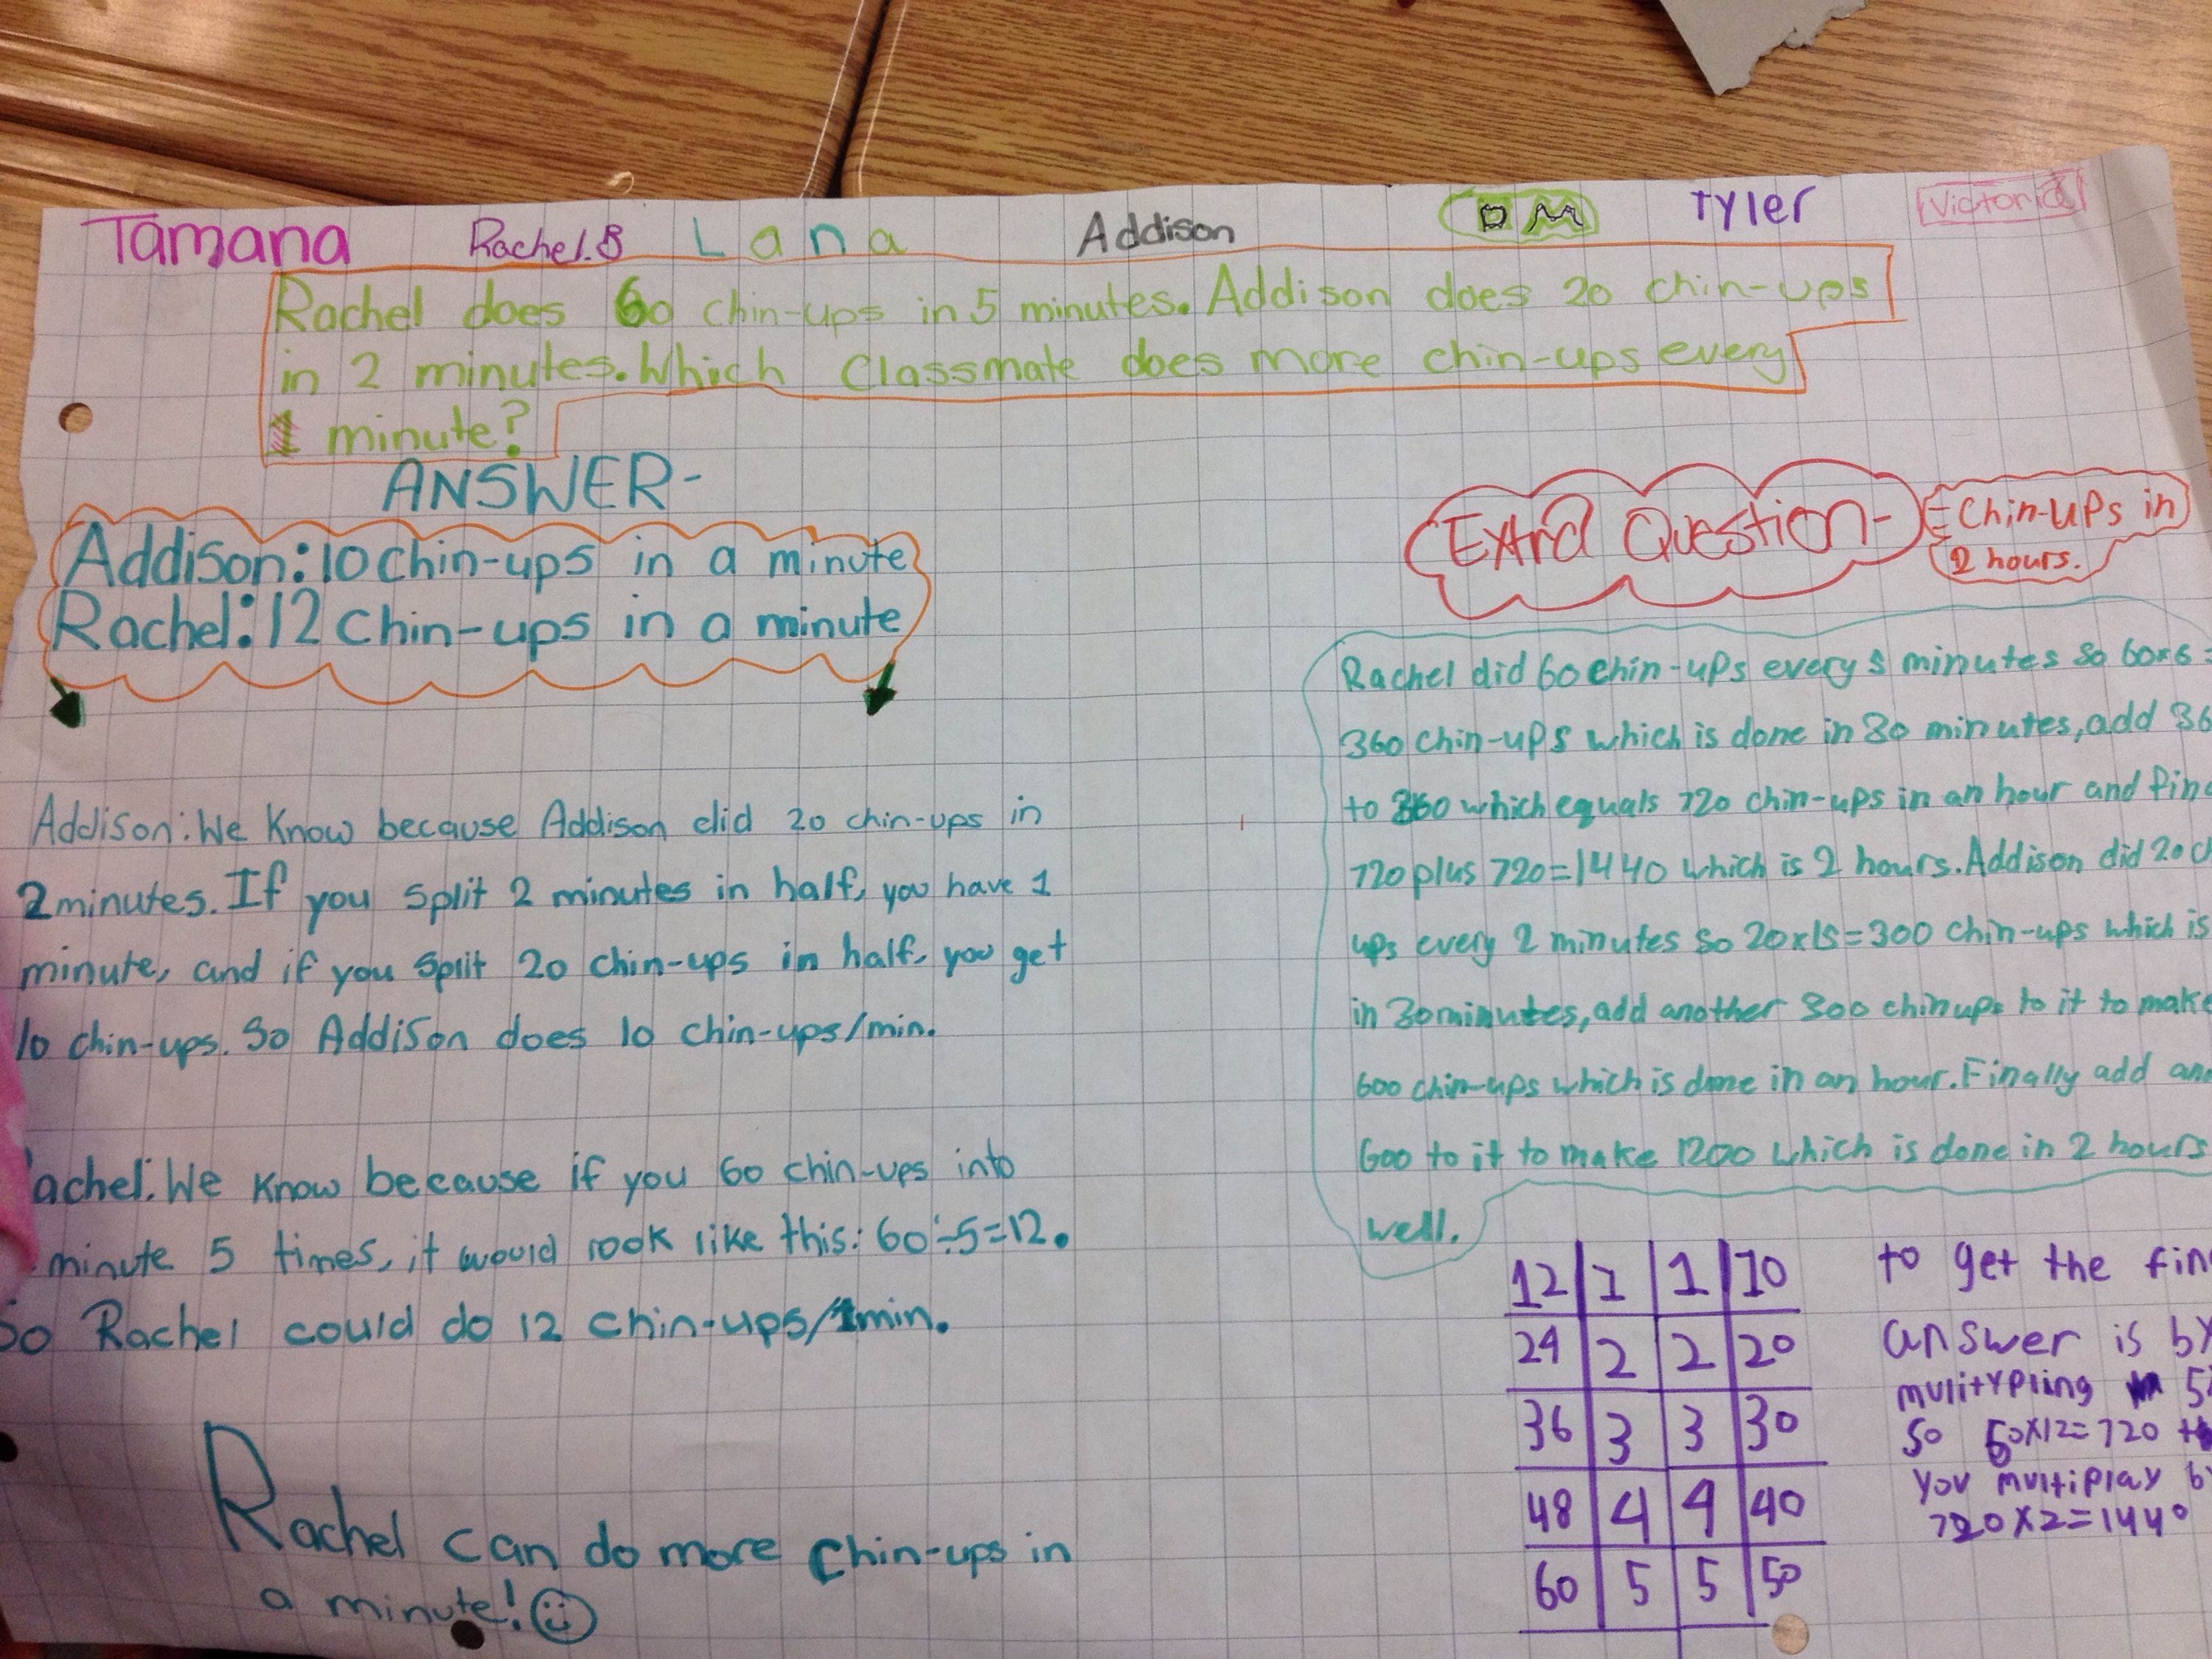 Tamana Rachel.B Lana Addison OM Tyler Victoria
Rachel does 60 chin-ups in 5 minutes. Addison does 20 chin-ups
in 2 minutes. Which classmate does more chin-ups every
1 minute?
ANSWER-
Addison: 10 chin-ups in a minute
Rachel: 12 chin-ups in a minute
Addison: We know because Addison did 20 chin-ups in
2 minutes. If you split 2 minutes in half, you have 1
minute, and if you split 20 chin-ups in half, you get
10 chin-ups. So Addison does 10 chin-ups/min.
achel: We know because if you 60 chin-ups into
minute 5 times, it would look like this: 60÷5=12.
So Rachel could do 12 chin-ups/1min.
Rachel can do more chin-ups in
a minute!
Extra Question-
= Chin-ups in
2 hours.
Rachel did 60 chin-ups every 5 minutes so 60x6=
360 chin-ups which is done in 30 minutes, add 36
to 360 which equals 720 chin-ups in an hour and fin
720 plus 720=1440 which is 2 hours. Addison did 20 c
ups every 2 minutes so 20x15=300 chin-ups which is
in 30 minutes, add another 300 chinups to it to make
600 chin-ups which is done in an hour. Finally add an
600 to it to make 1200 which is done in 2 hours
well.
12 1 1 10
24 2 2 20
36 3 3 30
48 4 4 40
60 5 5 50
to get the fin
answer is by
mulitypling 5
so 60x12=720
you multiplay b
720x2=1440